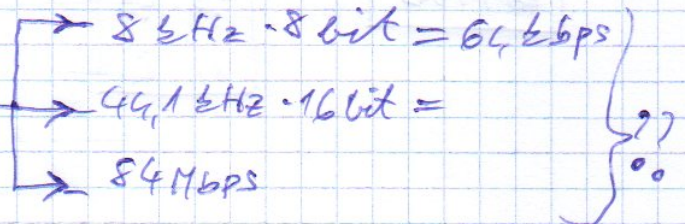 8 kHz · 8 bit = 64 kbps
44,1 kHz · 16 bit =
84 Mbps
??